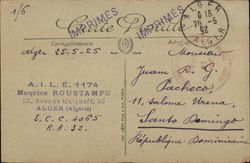 1/6
IMPRIMÉS
IMPRIMÉS
ALGER
6 15
ALGER
Carte Postale
Correspondance
Alger 25-5-25
Monsieur
Juan R. G.
Pacheco
11, Salome Ureña,
Santo Domingo
République Dominicaine
A.I.L.E. 1174
Maurice ROUSTAMPE
10, Avenue Malakoff, 10
ALGER (Algérie)
L.C.C. 4065
R.A. 32.